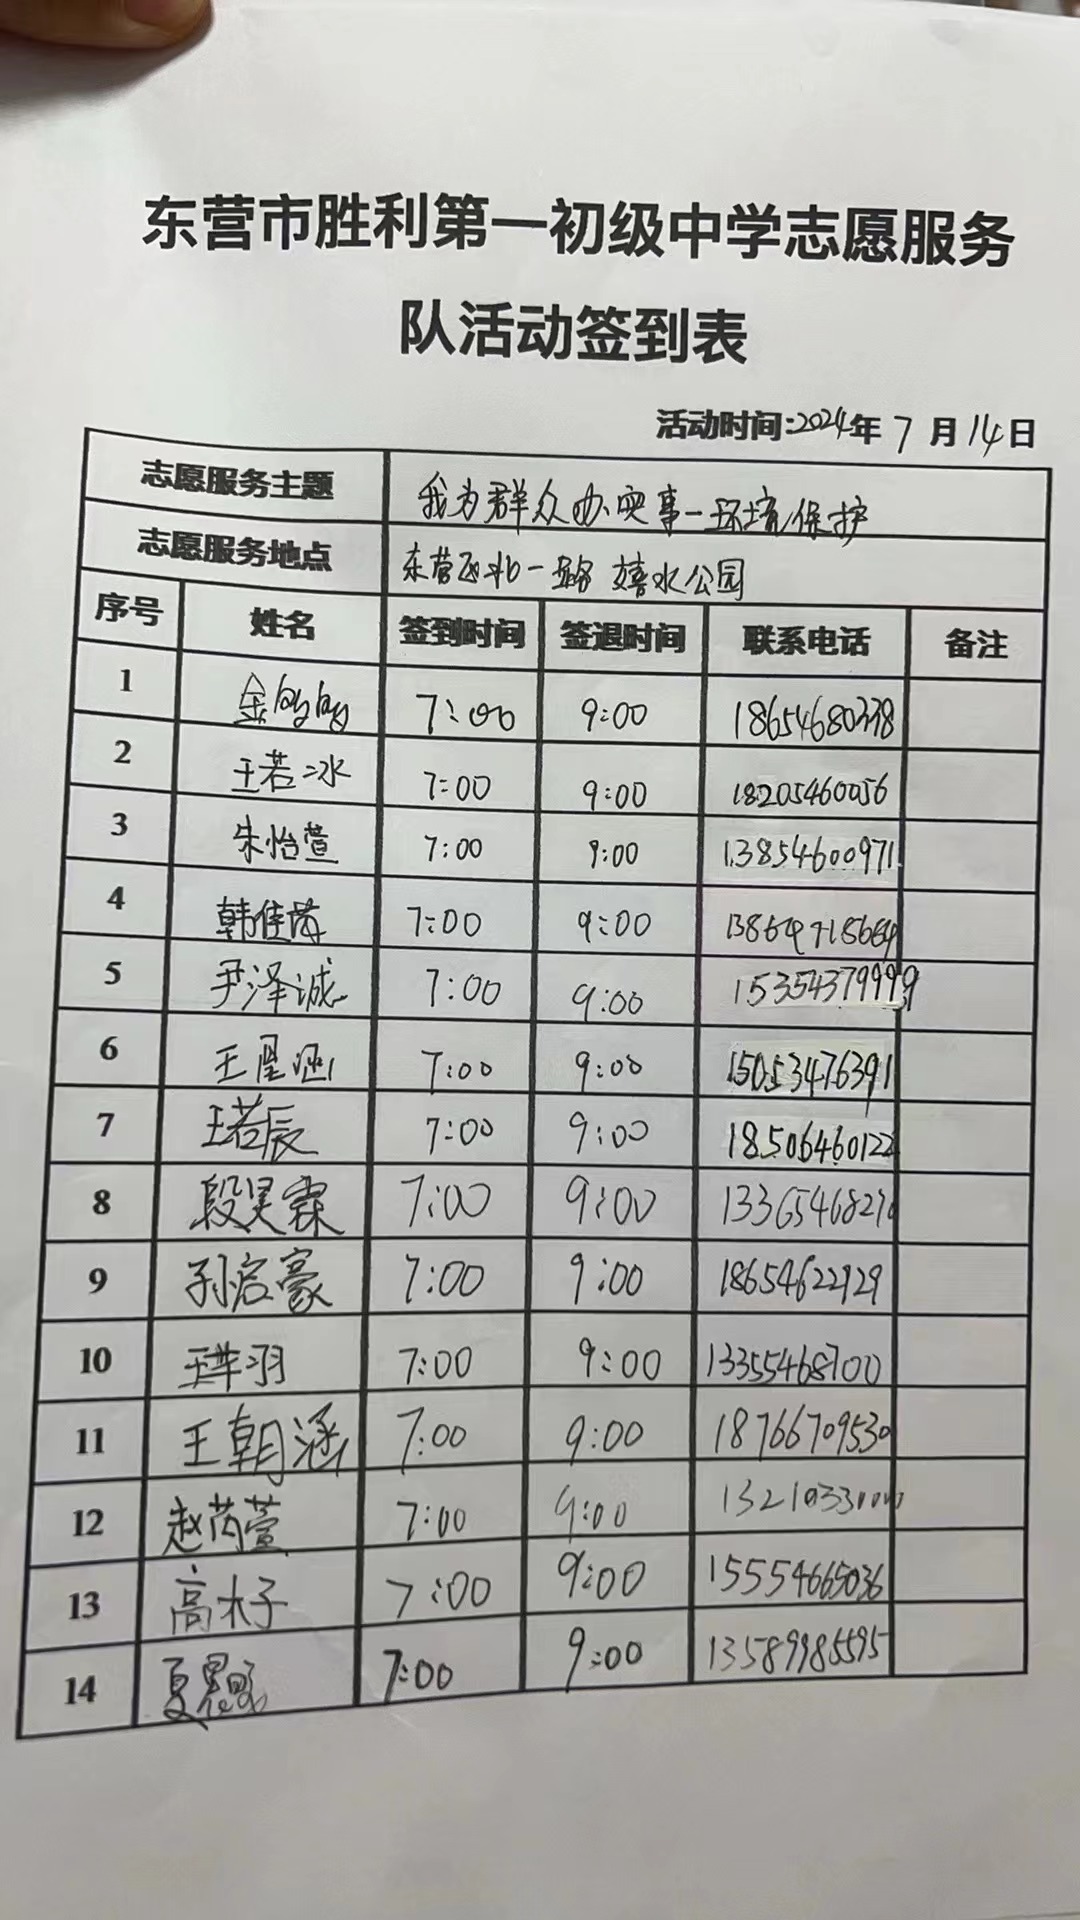 东营市胜利第一初级中学志愿服务
队活动签到表
活动时间:2024年 7 月 14 日
志愿服务主题 我为群众办实事一环境保护
志愿服务地点 东营区北一路 嬉水公园
序号 姓名 签到时间 签退时间 联系电话 备注
1 7:00 9:00 18654680338
2 王若冰 7:00 9:00 18205460056
3 朱怡萱 7:00 9:00 13854600971
4 韩佳芮 7:00 9:00
5 尹泽诚 7:00 9:00 15354379999
6 7:00 9:00 15053476391
7 王若辰 7:00 9:00 18506460122
8 段昊霖 7:00 9:00
9 孙启豪 7:00 9:00 18654622929
10 7:00 9:00 13355468700
11 王朝涵 7:00 9:00 18766709530
12 赵芮萱 7:00 9:00
13 高木子 7:00 9:00 15554665036
14 7:00 9:00 13589985595